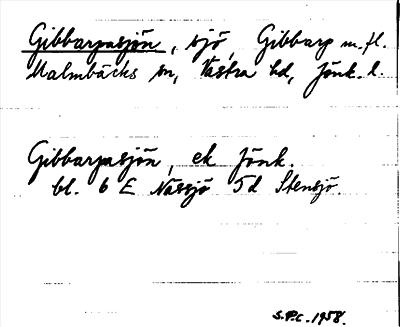 Gibbarpasjön, sjö, Gibbarp m.fl.
Malmbäcks sn, Västra hd, Jönk. l.
Gibbarpasjön, ek Jönk.
bl. 6 E Nässjö 5d Stensjö.
S.P.C. 1958.